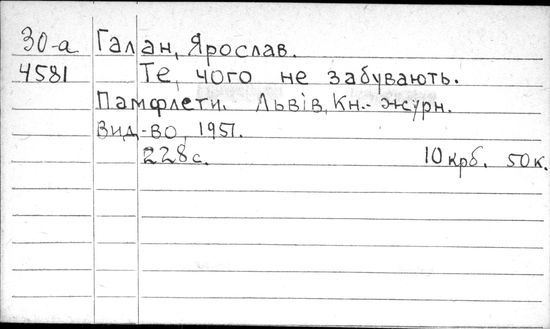 30-а Галан, Ярослав.
4581 Те, чого не забувають.
Памфлети. Львів, Кн.-журн.
Вид-во, 1951.
228 с. 10 крб. 50 к.